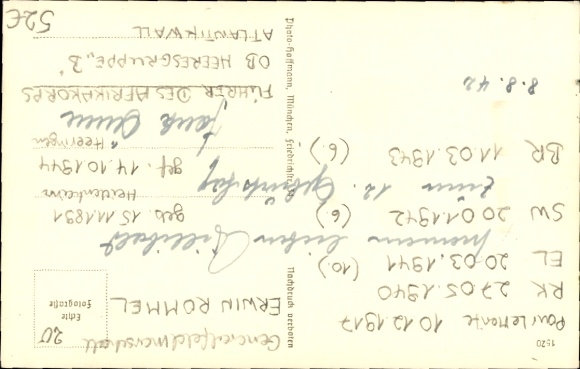 1520
Pour le Mérite 10.12.1917
RK 27.05.1940
EL 20.03.1941 (10.)
SW 20.01.1942 (6.)
BR 11.03.1943 (6.)
meinem lieben
zum 12. Geburtstag
8.8.42
Nachdruck verboten
Photo-Hoffmann, München, Friedrichstr. 34
Echte
Fotografie
20
Generalfeldmarschall
ERWIN ROMMEL
geb. 15.11.1891
Heidenheim
gef. 14.10.1944
Herrlingen
FÜHRER DES AFRIKAKORPS
OB HEERESGRUPPE „B"
ATLANTIKWALL
52€